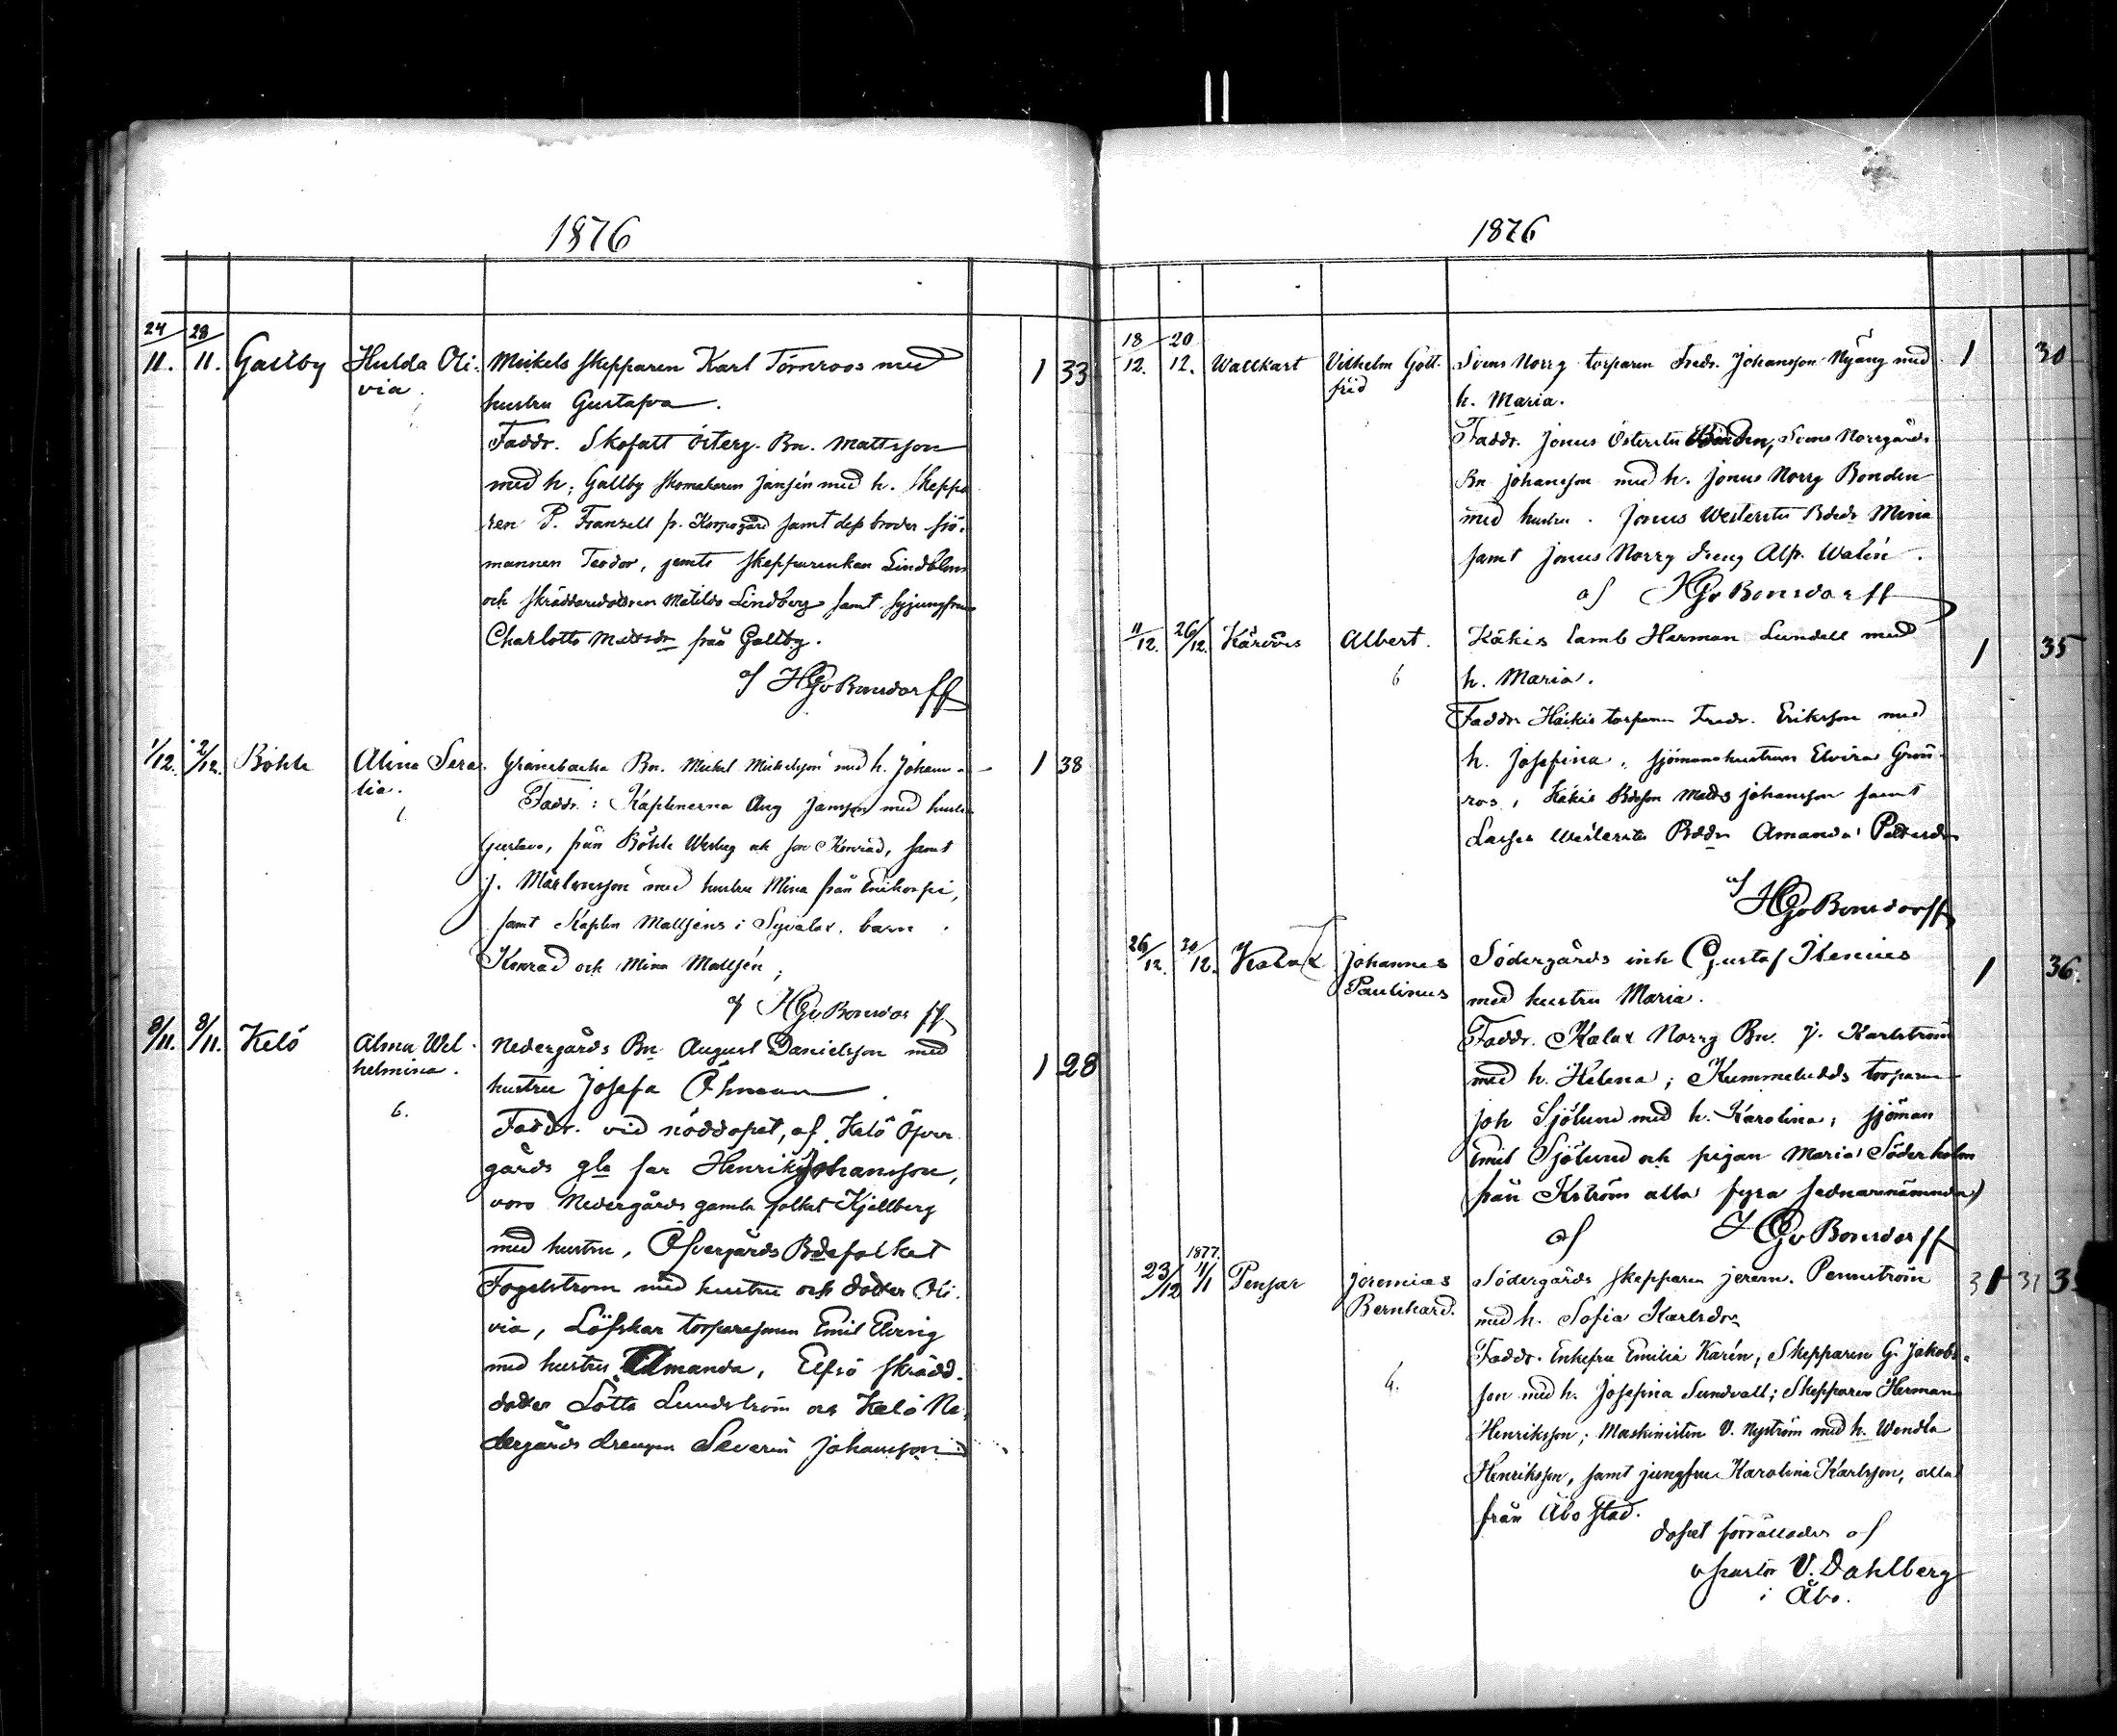 1876
24 28
11. 11. Gallby Hulda Oli- Mickels skepparen Karl Törnroos med 1 33
via. hustru Gustafva.
Faddr. Skofatt Österg. Bn. Mattsson
med h; Gallby skomakaren Jansén med h. Skeppa
ren P. Franzell fr. Korpogård samt dess broder sjö-
mannen Teodor, jemte skepparenkan Lindblom
och skräddaredottren Matilda Lindberg samt syjungfrun
Charlotta Mattsdr från Gallby.
af HGvBonsdorff
1/12. 2/12. Böhle Alina Sera- Grännbacka Bn. Mickel Mickelsson med h. Johanna 1 38
lia. Faddr: Kaptenerna Aug Jansson med hustru
Gustava, från Böhle Westerg och son Konrad, samt
J. Mårtensson med hustru Mina från
samt Kapten Mattsens i barn
Konrad och Mina Mattsén;
af HGvBonsdorff
8/11. 8/11. Kelö Alma Wel- Nedergårds Bn August Danielsson med 1 28
helmina. hustru Josefa Öhman.
6. Faddr. vid nöddopet, af Kelö Öfver
gårds gla far Henrik Johansson,
voro Nedergårds gamla folket Kjellberg
med hustru, Öfvergårds Bdefolket
Fogelström med hustru och dotter Oli-
via, Löfskar torparesonen Emil
med hustru Amanda, Elfsö skrädd.
dotter Lotta Lundström och Kelö Ne-
dergårds drengen Severin Johansson
1876
18 20
12. 12. Wattkast Vilhelm Gott- Svens Norrg torparen Fredr. Johansson Nyäng med 1 30
frid h. Maria.
Faddr. Jonus Österstu Bonden, Svens Norrgårds
Bn Johansson med h. Jonus Norrg Bonden
med hustru. Jonus Westerstu Bdedr Mina
samt Jonus Norrg dreng Alfr. Walén.
af HGvBonsdorff
11/12. 26/12. Kärvois Albert. Käkis Herman Lundell med 1 35
6 h. Maria.
Faddr Käkis torparen Fredr. Eriksson med
h. Josefina, sjömanshustrun Elvira Grön-
ros, Käkis Bdeson Matts Johansson samt
Lasses Westerstu Bddr Amanda Pettersdr
af HGvBonsdorff
26/12. 30/12. Kalax Johannes Södergårds inh Gustaf Ilenius 1 36.
Paulinus med hustru Maria.
Faddr. Kalax Norrg Bn. J. Karlström
med h. Helena; Kummeludds torparen
Joh Sjölund med h. Karolina; sjöman
Emil Sjölund och pigan Maria Söderholm
från Kström alla fyra sednarenämnda)
af HGvBonsdorff
1877.
23/12 4/1 Pensar Jeremias Södergårds skepparen Jerem. Pennström 31
Bernhard. med h. Sofia Karlsdr
Faddr. Enkefru Emilia Karén, Skepparen G. Jakobs-
6. son med h. Josefina Sundvall; Skepparen Herman
Henriksson; Maskinisten V. Nyström med h. Wendla
Henriksson, samt jungfru Karolina Karlsson, alla
från Åbo stad.
dopet förrättades af
v pastor V. Dahlberg
i Åbo.